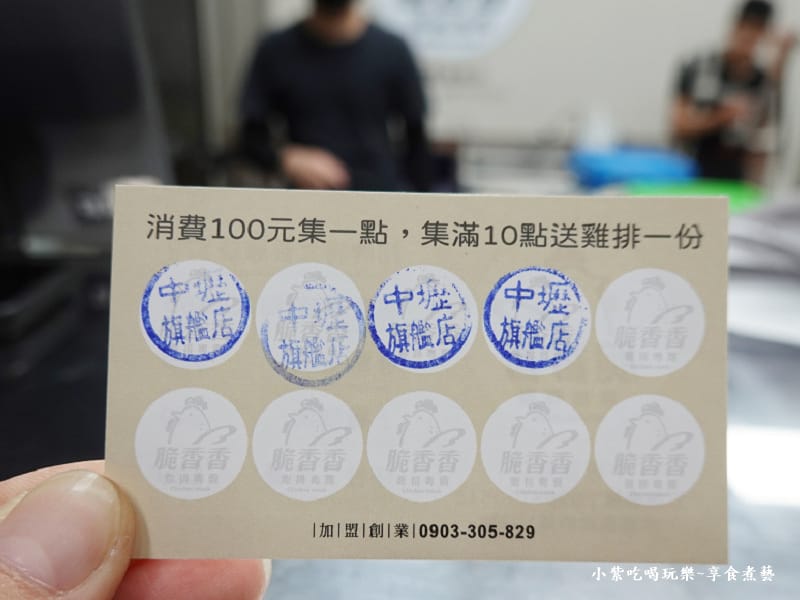 消費100元集一點，集滿10點送雞排一份
中壢
旗艦店
中壢
旗艦店
中壢
旗艦店
中壢
旗艦店
脆香香
脆香香
雞排專賣
脆香香
雞排專賣
脆香香
雞排專賣
脆香香
雞排專賣
脆香香
雞排專賣
|加|盟|創|業|0903-305-829
小紫吃喝玩樂~享食煮藝